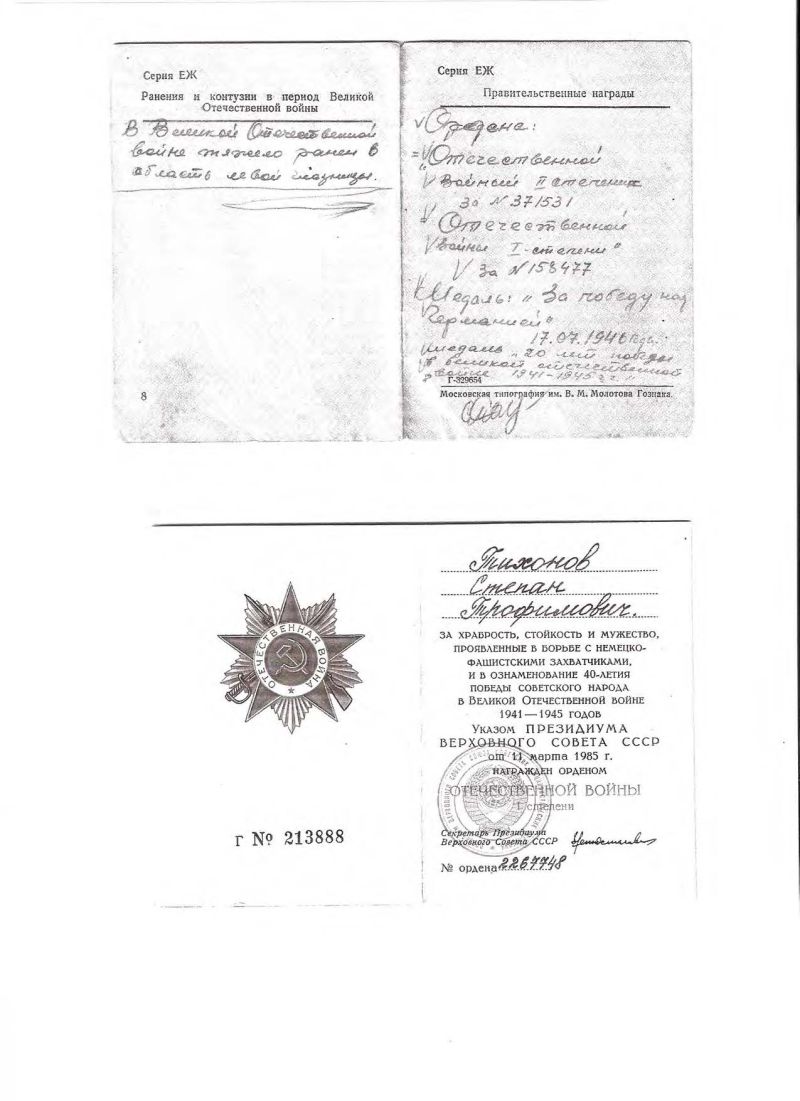 Серия ЕЖ
Ранения и контузии в период Великой
Отечественной войны
В Великой Отечественной
войне тяжело ранен в
область левой глазницы.
8
Серия ЕЖ
Правительственные награды
Ордена:
Отечественной
Войны II степени
за N 371531
Отечественной
Войны I-степени"
За N 153477
Медаль: "За победу над
Германией"
17.07.1946
медаль "20 лет победы
в великой отечественной
войне 1941-1945 гг.
Г-329654
Московская типография им. В. М. Молотова Гознака.
ОТЕЧЕСТВЕННАЯ ВОЙНА
г № 213888
Тихонов
Степан
Трофимович.
ЗА ХРАБРОСТЬ, СТОЙКОСТЬ И МУЖЕСТВО,
ПРОЯВЛЕННЫЕ В БОРЬБЕ С НЕМЕЦКО-
ФАШИСТСКИМИ ЗАХВАТЧИКАМИ,
И В ОЗНАМЕНОВАНИЕ 40-ЛЕТИЯ
ПОБЕДЫ СОВЕТСКОГО НАРОДА
В ВЕЛИКОЙ ОТЕЧЕСТВЕННОЙ ВОЙНЕ
1941—1945 ГОДОВ
УКАЗОМ ПРЕЗИДИУМА
ВЕРХОВНОГО СОВЕТА СССР
от 11 марта 1985 г.
НАГРАЖДЕН ОРДЕНОМ
ОТЕЧЕСТВЕННОЙ ВОЙНЫ
I степени
Секретарь Президиума
Верховного Совета СССР
№ ордена 2267748